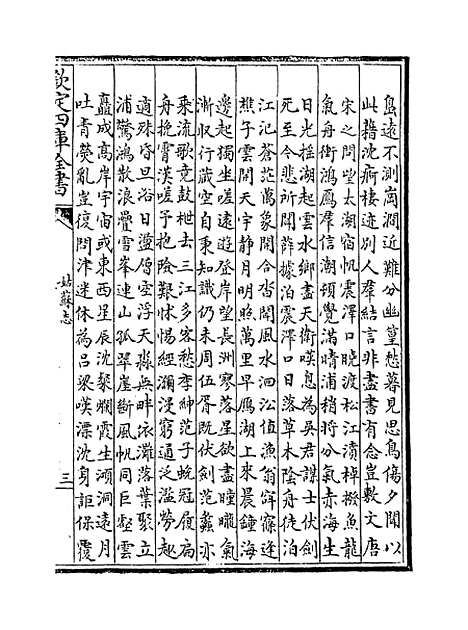 島遠不測崗澗近難分幽篁愁暮見思鳥傷夕聞以
此藉沈痾棲迹別人羣結言非盡書有念豈敷文唐
宋之問望太湖宿帆震澤口曉渡松江濆棹撥魚龍
氣舟衝鴻鴈羣信潮頓覺滿晴浦稍將分氣赤海生
日光搖湖起雲水鄉盡天衛嘆息為吳君謀士伏劍
死至今悲所聞薛據泊震澤口日落草木陰舟徒泊
江汜蒼茫萬象開合沓聞風水洄沿值漁翁窅窱逢
樵子雲開天宇靜月明照萬里早雁湖上來晨鍾海
邊起獨坐嗟遠遊登岸望長洲寥落星欲盡曈曨氣
漸收行藏空自秉知識仍未周伍胥既伏劍范蠡亦
乘流歌竟鼓枻去三江多客愁李紳范子蛻冠履扁
舟掩霄漢嗟予抱險艱怵惕經瀰漫窮通泛濫勞趣
適殊昏旦浴日盪層空浮天淼無畔依灘落葉聚立
浦驚鴻散浪疊雪峯連山孤翠崖斷風帆同巨壑雲
矗成高岸宇宙或東西星辰沈粲爛霞生澒洞遠月
吐青熒亂豈復問津迷休為呂梁嘆漂沈身詎保覆
欽定四庫全書
姑蘇志
三